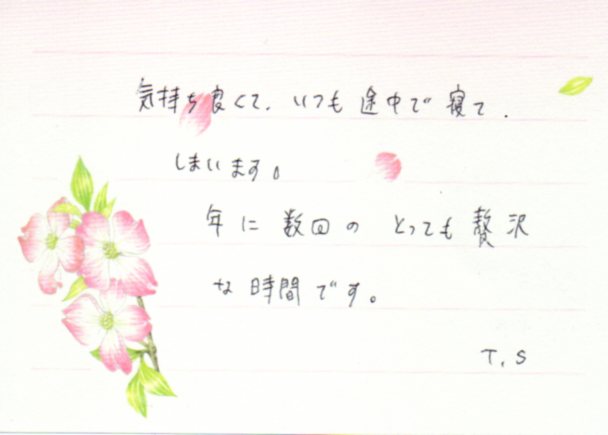 気持ち良くて、いつも途中で寝て、
しまいます。
年に数回のとっても贅沢
な時間です。
T,S